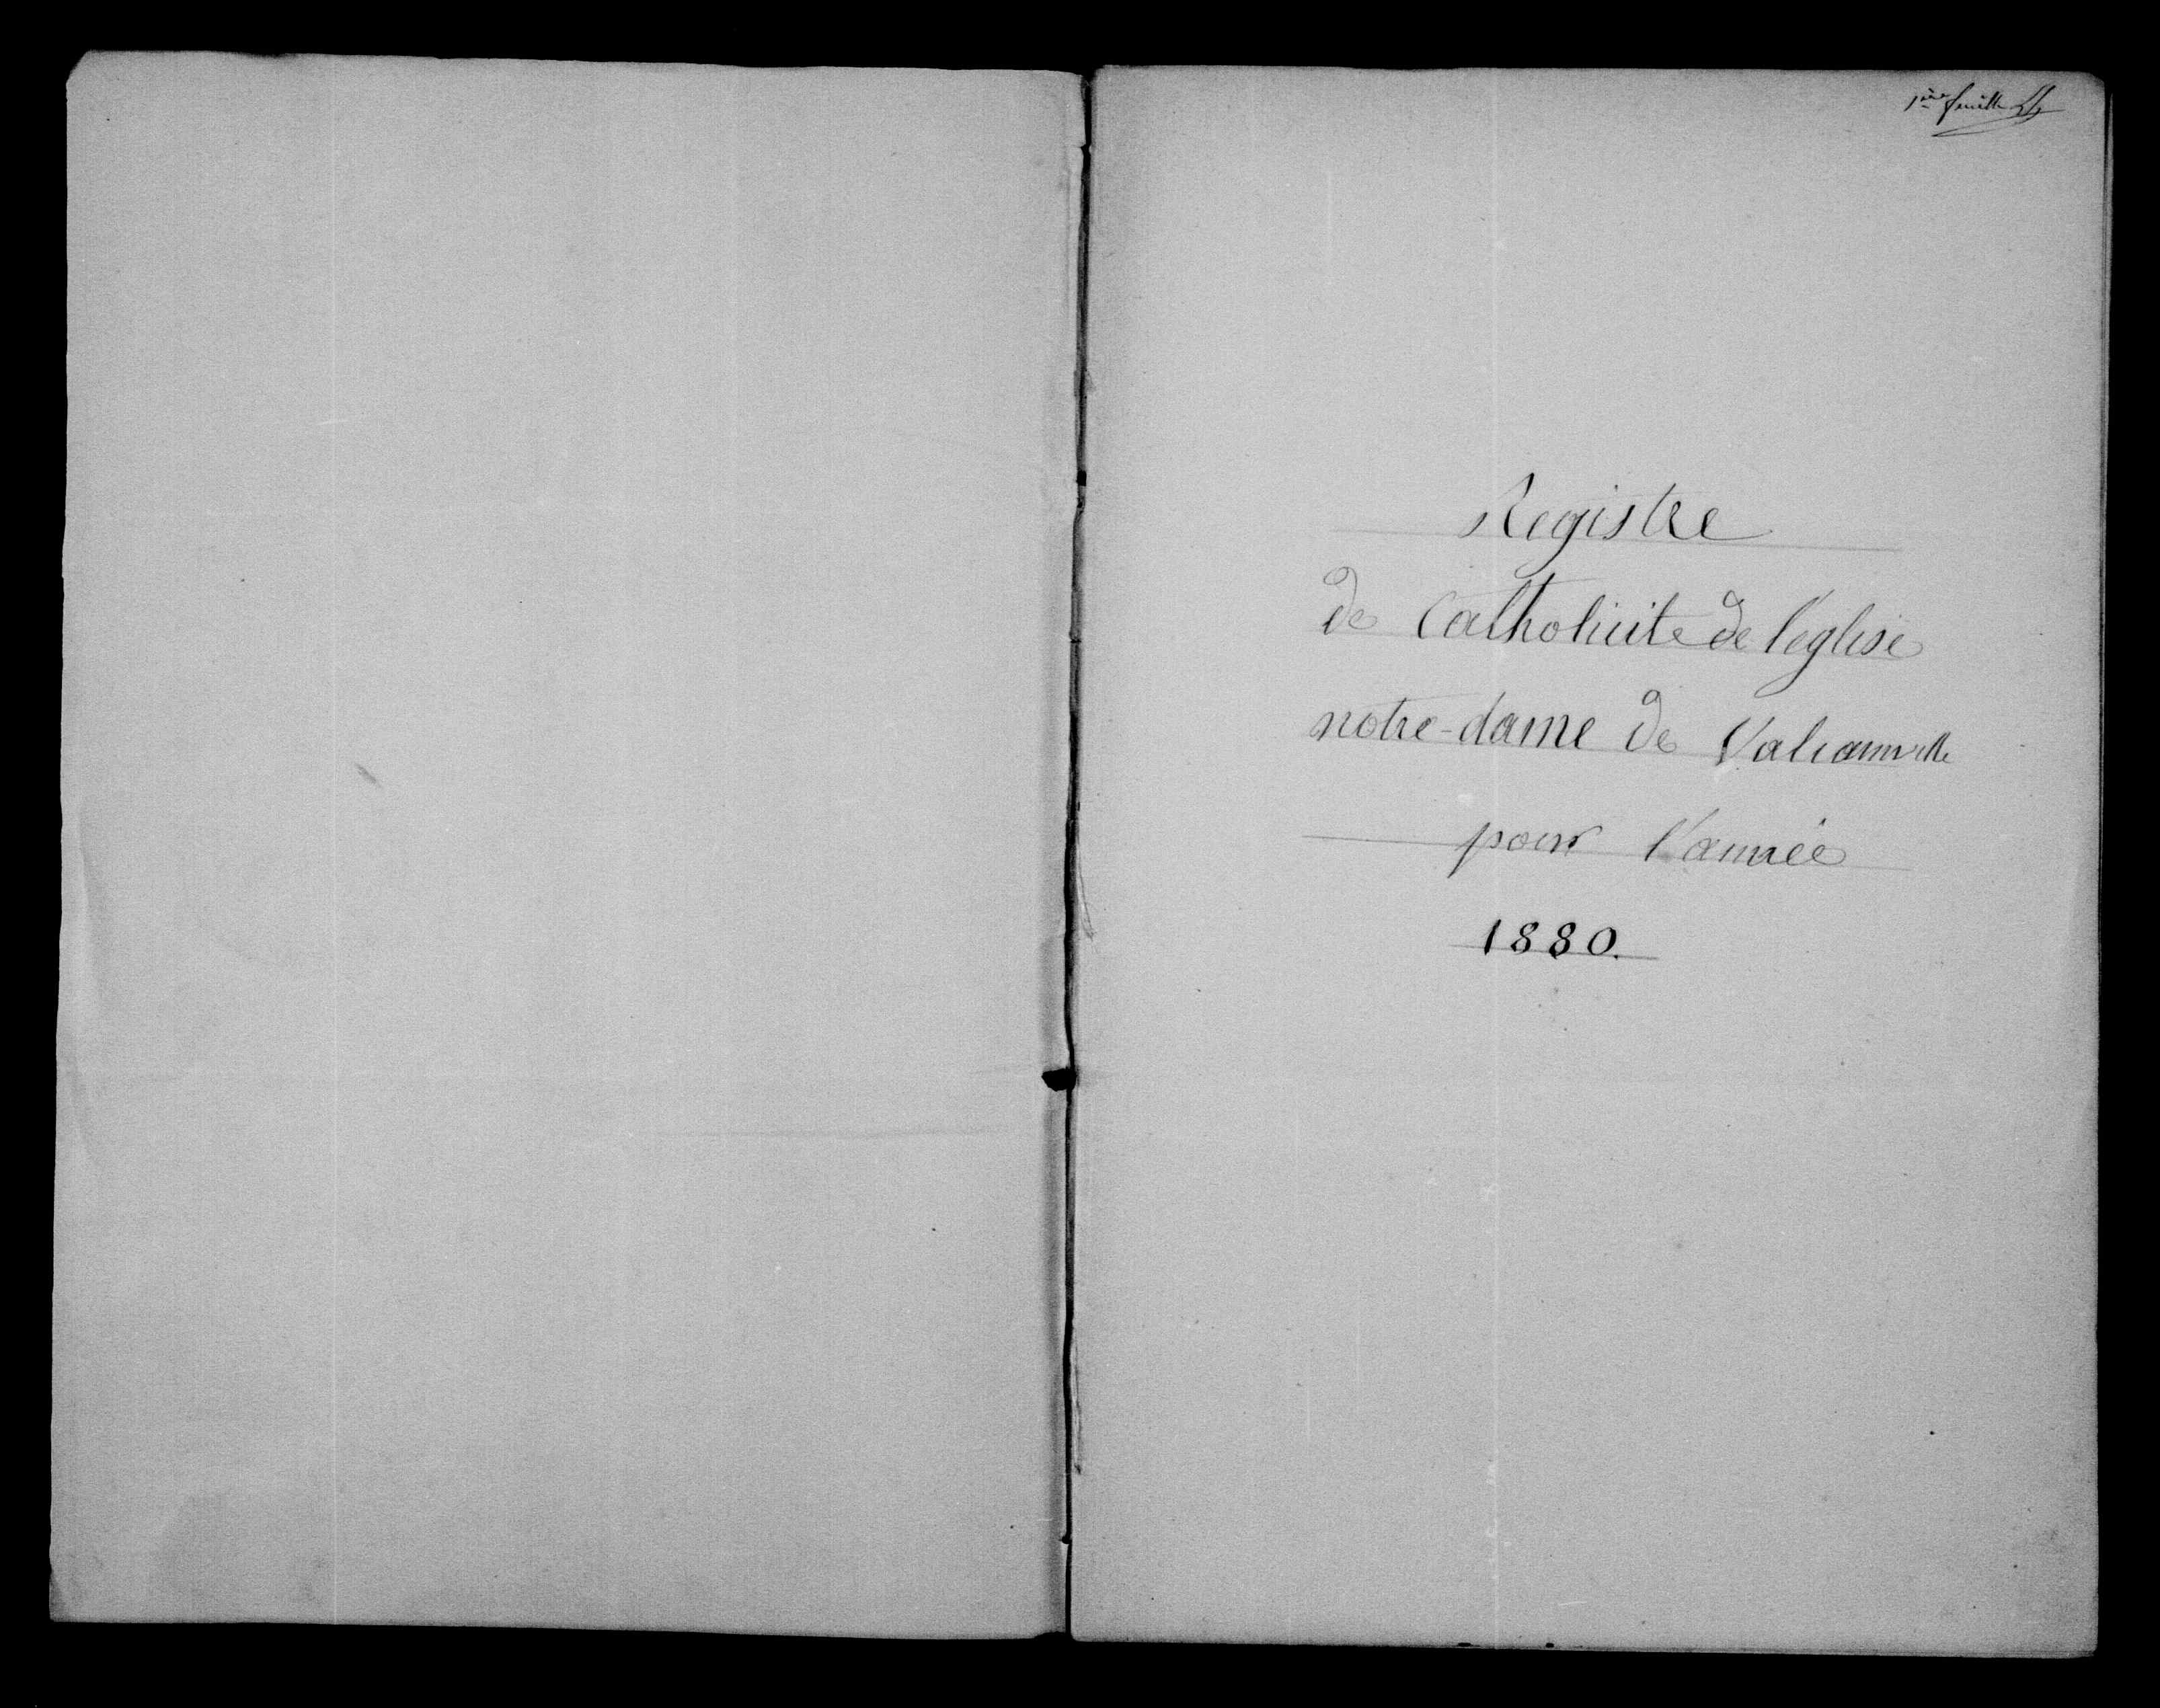 1ère feuille
Registre
de Catholicite de l'église
notre-dame de Valcanville
pour l'année
1880.